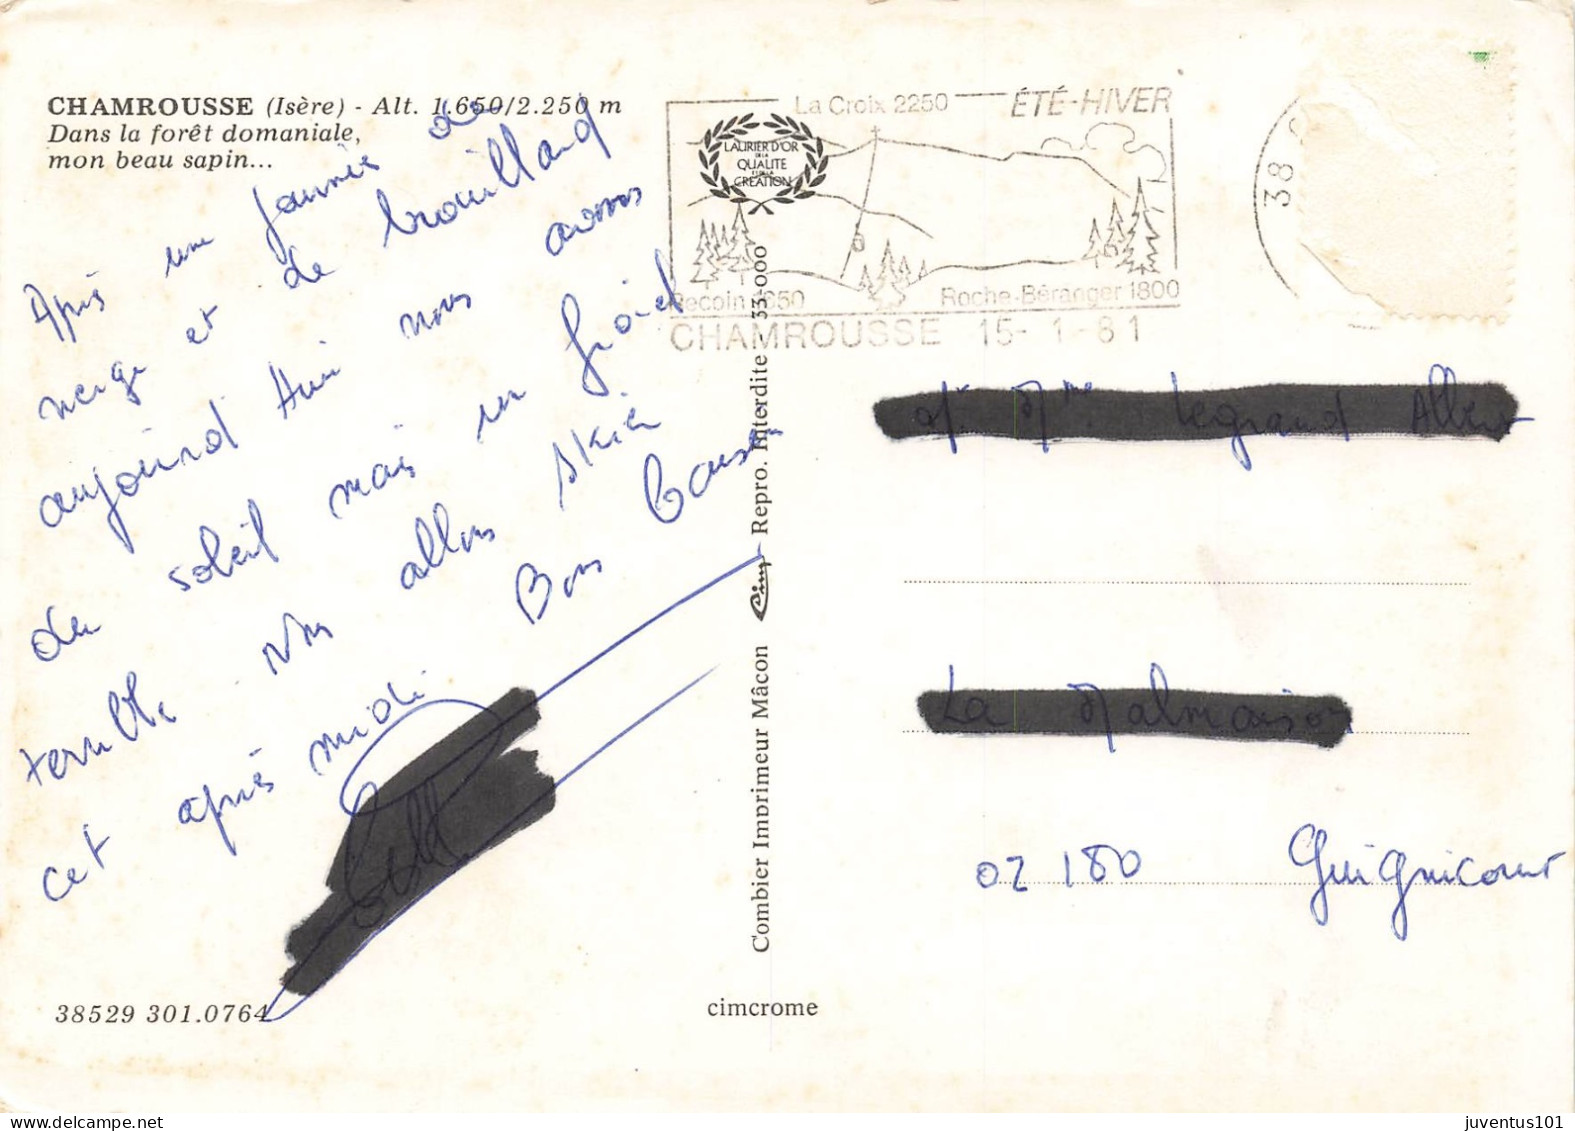 CHAMROUSSE (Isère) - Alt. 1.650/2.250 m
Dans la forêt domaniale,
mon beau sapin...
Après une journée de
neige et de brouillard
aujourd hui nous avons
du soleil mais un froid
terrible Nous allons skier
cet après midi. Bons Baisers
38529 301.0764
Combier Imprimeur Mâcon Cim Repro. Interdite 33.000
cimcrome
La Croix 2250 ÉTÉ-HIVER
LAURIER D'OR
DE LA
QUALITE
ET DE LA
CREATION
Recoin 1650 Roche-Béranger 1800
CHAMROUSSE 15- 1-81
38
02 180 Guignicourt
juventus101